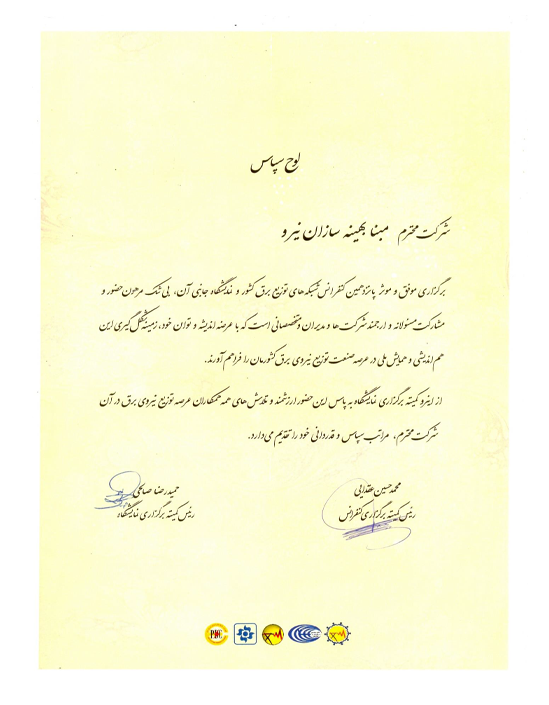 لوح سپاس
شرکت محترم مبنا بهینه سازان نیرو
برگزاری موفق و موثر پانزدهمین کنفرانس شبکه های توزیع برق کشور و نمایشگاه جانبی آن، بی شک مرهون حضور و
مشارکت مسئولانه و ارجمند شرکت ها و مدیران و متخصصانی است که با عرضه اندیشه و توان خود، زمینه شکل گیری این
هم اندیشی و همایش ملی در عرصه صنعت توزیع نیروی برق کشورمان را فراهم آورند.
از اینرو کمیته برگزاری نمایشگاه به پاس این حضور ارزشمند و تلاش های همه همکاران عرصه توزیع نیروی برق در آن
شرکت محترم، مراتب سپاس و قدردانی خود را تقدیم می دارد.
محمدحسین عقدایی
رئیس کمیته برگزاری کنفرانس
حمیدرضا صالحی
رئیس کمیته برگزاری نمایشگاه